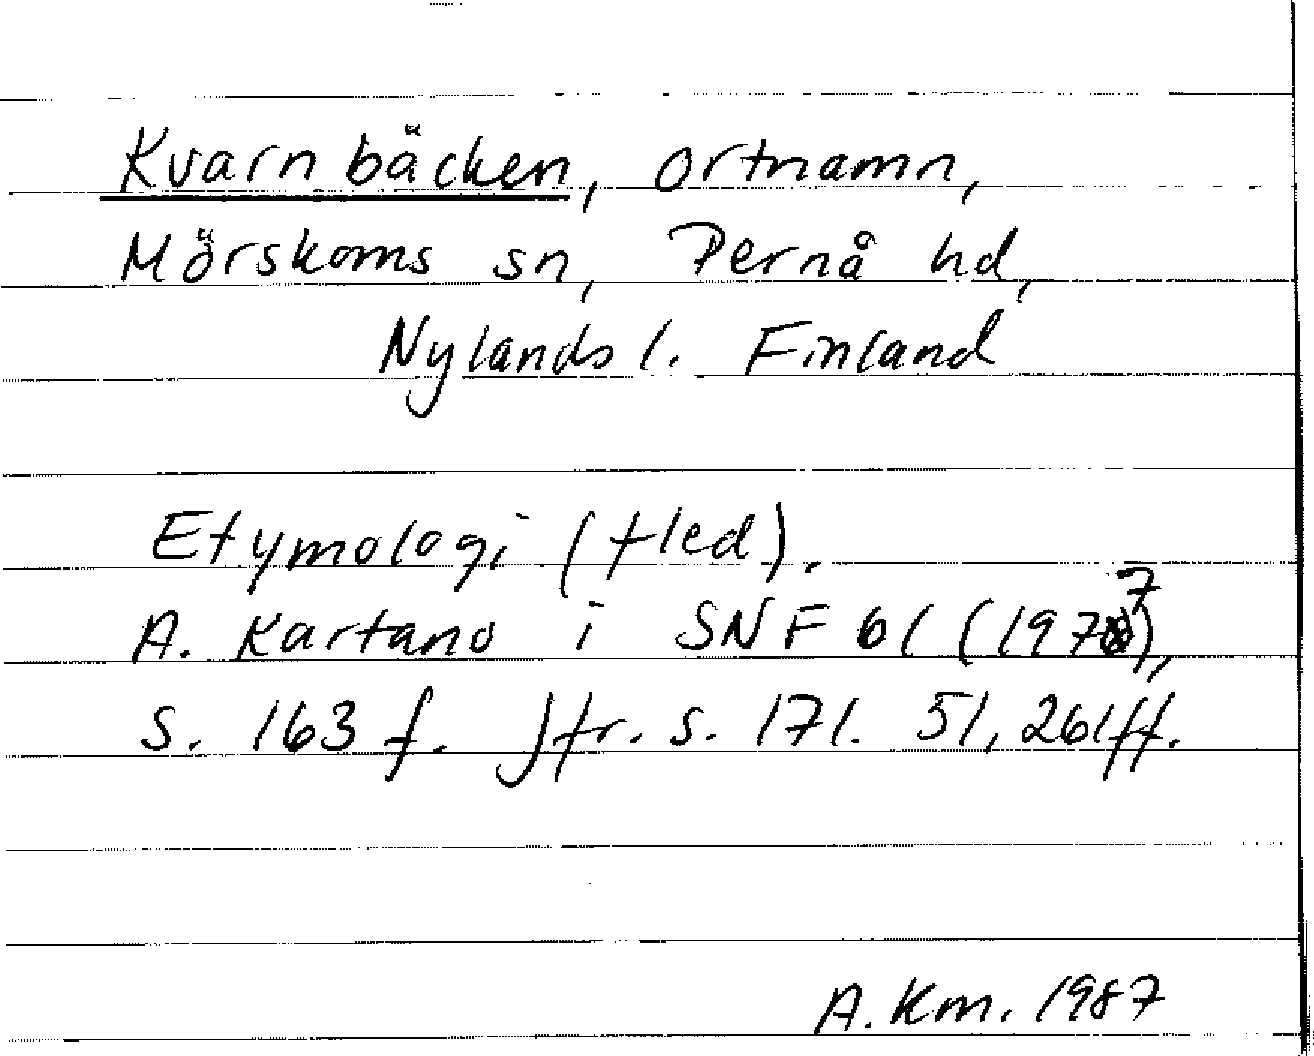 Kvarnbäcken, ortnamn,
Mörskoms sn, Pernå hd,
Nylands l. Finland
Etymologi (fled).
A. Kartano i SNF 61 (1977),
s. 163 f. Jfr. s. 171. 51, 261ff.
A. Km. 1987